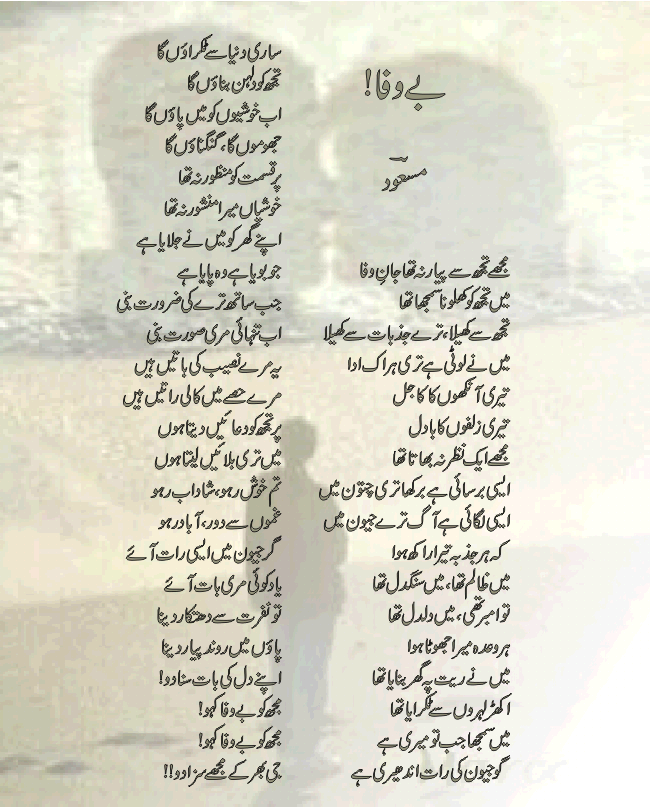 بے وفا!
مسعود
مجھے تجھ سے پیار نہ تھا جانِ وفا
میں تجھ کو کھلونا سمجھا تھا
تجھ سے کھیلا، ترے جذبات سے کھیلا
میں نے لوٹی ہے تری ہر اک ادا
تیری آنکھوں کا کاجل
تیری زلفوں کا بادل
مجھے ایک نظر نہ بھاتا تھا
ایسی برسائی ہے برکھا تری چتون میں
ایسی لگائی ہے آگ ترے جیون میں
کہ ہر جذبہ تیرا راکھ ہوا
میں ظالم تھا، میں سنگدل تھا
تو امبر تھی، میں دلدل تھا
ہر وعدہ میرا جھوٹا ہوا
میں نے ریت پہ گھر بنایا تھا
اکھڑ لہروں سے ٹکرایا تھا
میں سمجھا جب تو میری ہے
گو جیون کی رات اندھیری ہے
ساری دنیا سے ٹکراؤں گا
تجھ کو دلہن بناؤں گا
اب خوشیوں کو میں پاؤں گا
جھوموں گا، گنگناؤں گا
پر قسمت کو منظور نہ تھا
خوشیاں میرا منشور نہ تھا
اپنے گھر کو میں نے جلایا ہے
جو بویا ہے وہ پایا ہے
جب ساتھ ترے کی ضرورت بنی
اب تنہائی مری صورت بنی
یہ مرے نصیب کی باتیں ہیں
مرے حصے میں کالی راتیں ہیں
پر تجھ کو دعائیں دیتا ہوں
میں تری بلائیں لیتا ہوں
تم خوش رہو، شاداب رہو
غموں سے دور، آباد رہو
گر جیون میں ایسی رات آئے
یاد کوئی مری بات آئے
تو نفرت سے دھتکار دینا
پاؤں میں روند پیار دینا
اپنے دل کی بات سنا دو!
مجھ کو بے وفا کہو!
مجھ کو بے وفا کہو!
جی بھر کے مجھے سزا دو!!